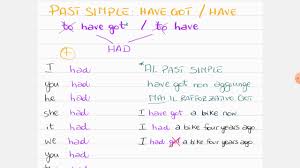 PAST SIMPLE: HAVE GOT / HAVE
to have got / to have
HAD
+
I had *AL PAST SIMPLE
you had have got non aggiunge
he had MAI IL RAFFORZATIVO GOT
she had I have got a bike now.
it had I had a bike four years ago.
we had I had got a bike four years ago.
you had